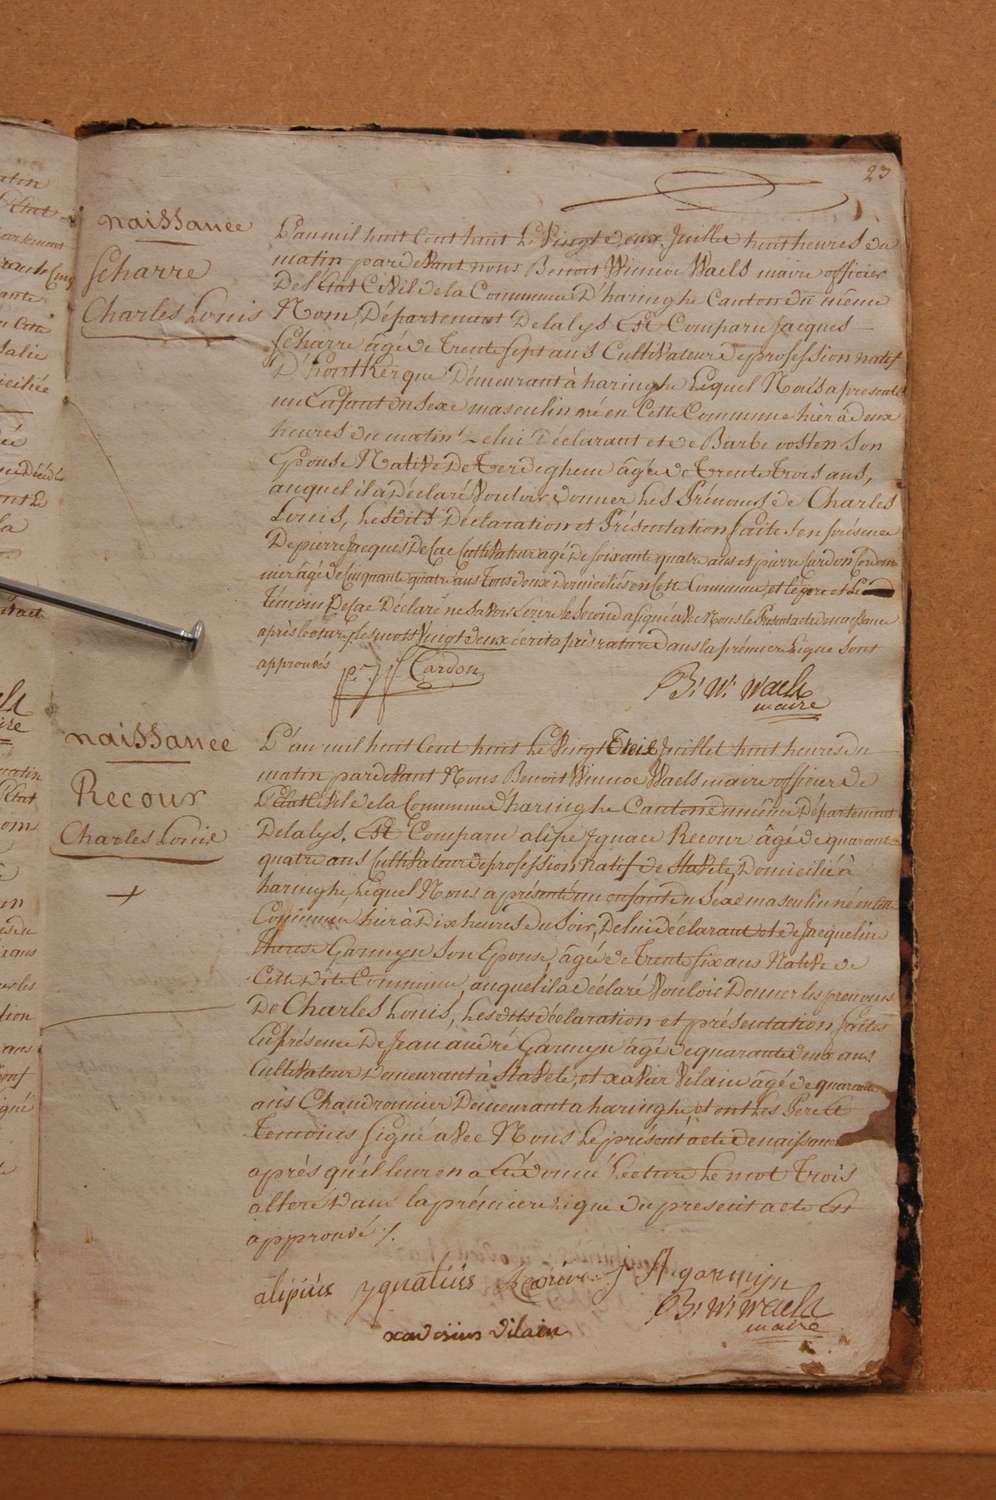 23
naissance
Scharre
Charles Louis
L'an mil huit cent huit le Vingt deux Juillet huit heures du
matin pardevant nous Benoit Winnoc Waels maire officier
De l'Etat Civil de la Commune D'haringhe Canton du même
Nom, Département De la lys Est Comparu Jacques
Scharre âgé de Trente Sept ans Cultivateur de profession natif
D'hontkerque Demeurant à haringhe Lequel Nous a presenté
un Enfant du Sexe masculin né en Cette Commune hier à deux
heures du matin De lui Déclarant et de Barbe oosten Son
Epouse Native De Terdeghem âgée de Trente Trois ans,
auquel il a Déclaré Vouloir donner les Prénoms de Charles
Louis, Lesdits Déclaration et Présentation faites en présence
De pierre Jacques De Cae Cultivateur agé de Soixante quatre ans et pierre Cardon Cordon
nier âgé de Cinquante quatre ans Tous deux domiciliés en Cette Commune, et le pere et le
Témoin De Cae Déclaré ne Savoir Ecrire le Second a signé avec Nous le Present acte de naissance
après lecture, les mots Vingt deux écrit après rature Dans la prémiere Ligne Sont
approuvés
p. J Cardon
B. W. Waels
maire
naissance
Recour
Charles Louis
L'an mil huit Cent huit le Vingt Trois Juillet huit heures du
matin pardevant Nous Benoit Winnoc Waels maire officier de
L'Etat Civil de la Commune d'haringhe Canton du même Département
De la lys. Est Comparu alipe Ignace Recour âgé de quarant
quatre ans Cultivateur de profession Natif de Stavele, Domicilié à
haringhe, Lequel Nous a présenté un enfant du Sexe masculin né en Cette
Commune hier à Dix heures du Soir, De lui déclarant et de Jacqueline
therese Garmyn Son Epouse, âgée de Trente Six ans Native de
Cette dite Commune, auquel il a déclaré Vouloir Donner les prenoms
De Charles Louis, Lesdits déclaration et présentation faites
En présence De Jean andré Garmyn âgé de quarante deux ans
Cultivateur Demeurant à Stavele, et xavier Vilain âgé de quarante
ans Chaudronnier Demeurant a haringhe, et ont les Pere et
Temoins Signé avec Nous le présent acte de naissance
après qu'il leur en a Eté donné Lecture Le mot Trois
alteré dans la prémiere Ligne du present acte Est
approuvé ./.
alipius ygnatius J A garmijn
B. W. Waels
maire
xaverius vilain